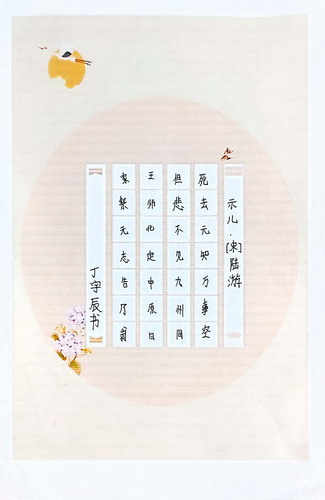 示儿·[宋]陆游
死去元知万事空
但悲不见九州同
王师北定中原日
家祭无忘告乃翁
丁宇辰书